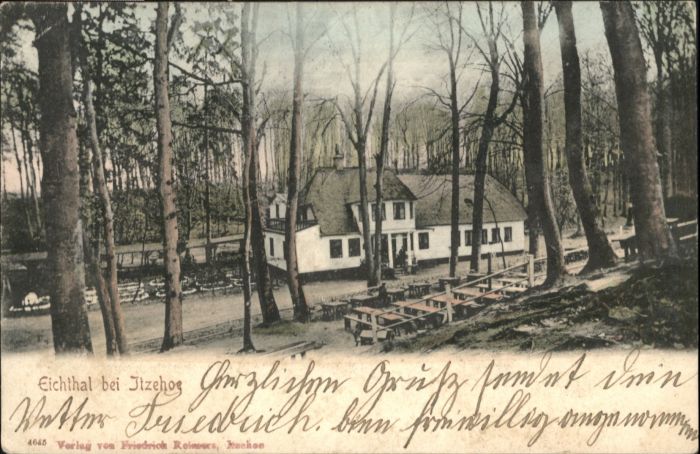 Eichthal bei Itzehoe Herzlichen Gruß sendet dein
Vetter Friedrich. bin freiwillig angenommen
4645 Verlag von Friedrich Reimers, Itzehoe